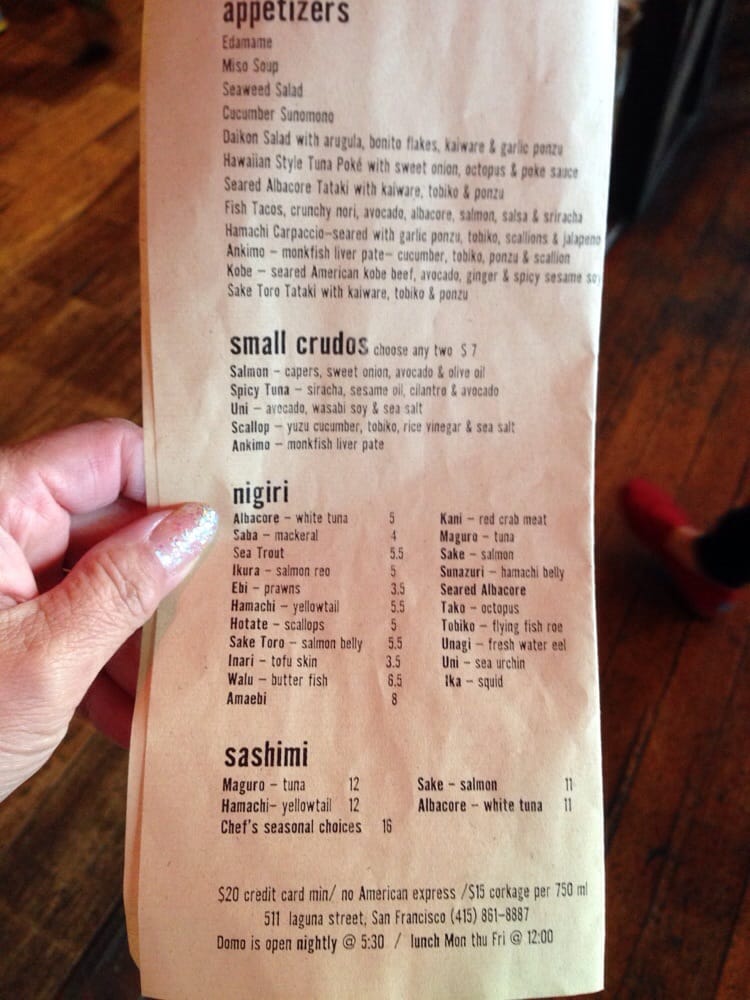 appetizers
Edamame
Miso Soup
Seaweed Salad
Cucumber Sunomono
Daikon Salad with arugula, bonito flakes, kaiware & garlic ponzu
Hawaiian Style Tuna Poké with sweet onion, octopus & poke sauce
Seared Albacore Tataki with kaiware, tobiko & ponzu
Fish Tacos, crunchy nori, avocado, albacore, salmon, salsa & sriracha
Hamachi Carpaccio–seared with garlic ponzu, tobiko, scallions & jalapeno
Ankimo – monkfish liver pate– cucumber, tobiko, ponzu & scallion
Kobe – seared American kobe beef, avocado, ginger & spicy sesame soy
Sake Toro Tataki with kaiware, tobiko & ponzu
small crudos choose any two $ 7
Salmon – capers, sweet onion, avocado & olive oil
Spicy Tuna – siracha, sesame oil, cilantro & avocado
Uni – avocado, wasabi soy & sea salt
Scallop – yuzu cucumber, tobiko, rice vinegar & sea salt
Ankimo – monkfish liver pate
nigiri
Albacore – white tuna 5 Kani – red crab meat
Saba – mackeral 4 Maguro – tuna
Sea Trout 5.5 Sake – salmon
Ikura – salmon reo 5 Sunazuri – hamachi belly
Ebi – prawns 3.5 Seared Albacore
Hamachi – yellowtail 5.5 Tako – octopus
Hotate – scallops 5 Tobiko – flying fish roe
Sake Toro – salmon belly 5.5 Unagi – fresh water eel
Inari – tofu skin 3.5 Uni – sea urchin
Walu – butter fish 6.5 Ika – squid
Amaebi 8
sashimi
Maguro – tuna 12 Sake – salmon 11
Hamachi– yellowtail 12 Albacore – white tuna 11
Chef's seasonal choices 16
$20 credit card min/ no American express /$15 corkage per 750 ml
511 laguna street, San Francisco (415) 861-8887
Domo is open nightly @ 5:30 / lunch Mon thu Fri @ 12:00